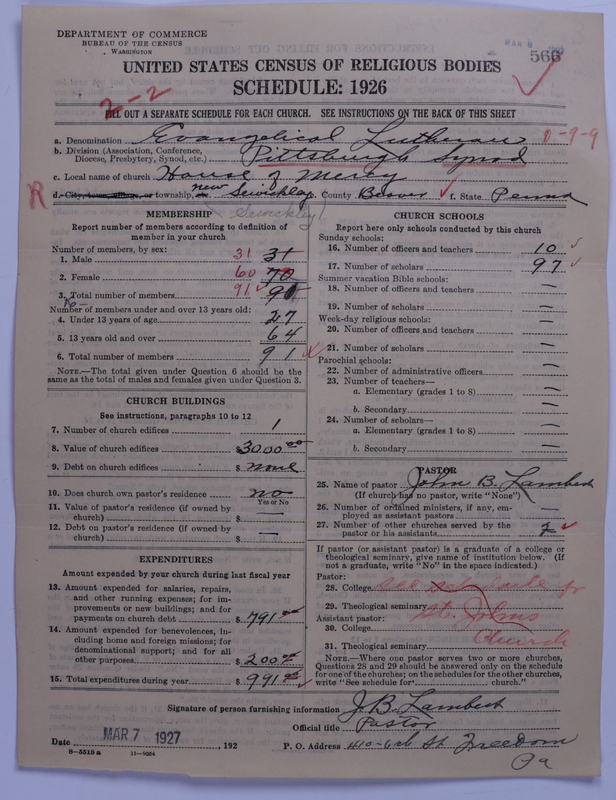 DEPARTMENT OF COMMERCE
BUREAU OF THE CENSUS
WASHINGTON
566
UNITED STATES CENSUS OF RELIGIOUS BODIES
SCHEDULE: 1926
2-2
FILL OUT A SEPARATE SCHEDULE FOR EACH CHURCH. SEE INSTRUCTIONS ON THE BACK OF THIS SHEET
a. Denomination Evangelical Lutheran 0-9-9
b. Division (Association, Conference, Diocese, Presbytery, Synod, etc.) Pittsburgh Synod
c. Local name of church House of Mercy
R d. City, town, village, or township, etc. new Sewickley e. County Beaver f. State Penna
Sewickley
MEMBERSHIP
Report number of members according to definition of member in your church
Number of members, by sex:
1. Male 31 31
2. Female 60 70
3. Total number of members 91 91
Number of members under and over 13 years old:
4. Under 13 years of age 27
5. 13 years old and over 64
6. Total number of members 91
NOTE.—The total given under Question 6 should be the same as the total of males and females given under Question 3.
CHURCH BUILDINGS
See instructions, paragraphs 10 to 12
7. Number of church edifices 1
8. Value of church edifices $3000 00
9. Debt on church edifices $ none
10. Does church own pastor's residence no
Yes or No
11. Value of pastor's residence (if owned by church) $ —
12. Debt on pastor's residence (if owned by church) $ —
EXPENDITURES
Amount expended by your church during last fiscal year
13. Amount expended for salaries, repairs, and other running expenses; for improvements or new buildings; and for payments on church debt $ 791
14. Amount expended for benevolences, including home and foreign missions; for denominational support; and for all other purposes $ 200
15. Total expenditures during year $ 991
CHURCH SCHOOLS
Report here only schools conducted by this church
Sunday schools:
16. Number of officers and teachers 10
17. Number of scholars 97
Summer vacation Bible schools:
18. Number of officers and teachers —
19. Number of scholars —
Week-day religious schools:
20. Number of officers and teachers —
21. Number of scholars —
Parochial schools:
22. Number of administrative officers —
23. Number of teachers—
a. Elementary (grades 1 to 8) —
b. Secondary —
24. Number of scholars—
a. Elementary (grades 1 to 8) —
b. Secondary —
PASTOR
25. Name of pastor John B. Lambert
(If church has no pastor, write "None")
26. Number of ordained ministers, if any, employed as assistant pastors —
27. Number of other churches served by the pastor or his assistants 2
If pastor (or assistant pastor) is a graduate of a college or theological seminary, give name of institution below. (If not a graduate, write "No" in the space indicated.)
Pastor:
28. College see schedule for
29. Theological seminary St. Johns
Assistant pastor:
30. College Church
31. Theological seminary
NOTE.—Where one pastor serves two or more churches, Questions 28 and 29 should be answered only on the schedule for one of the churches; on the schedules for the other churches, write "See schedule for church."
Signature of person furnishing information J. B. Lambert
Official title Pastor
Date MAR 7 1927, 192
P. O. Address 410-6th St Freedom
Pa
8-5519 a 11-9054